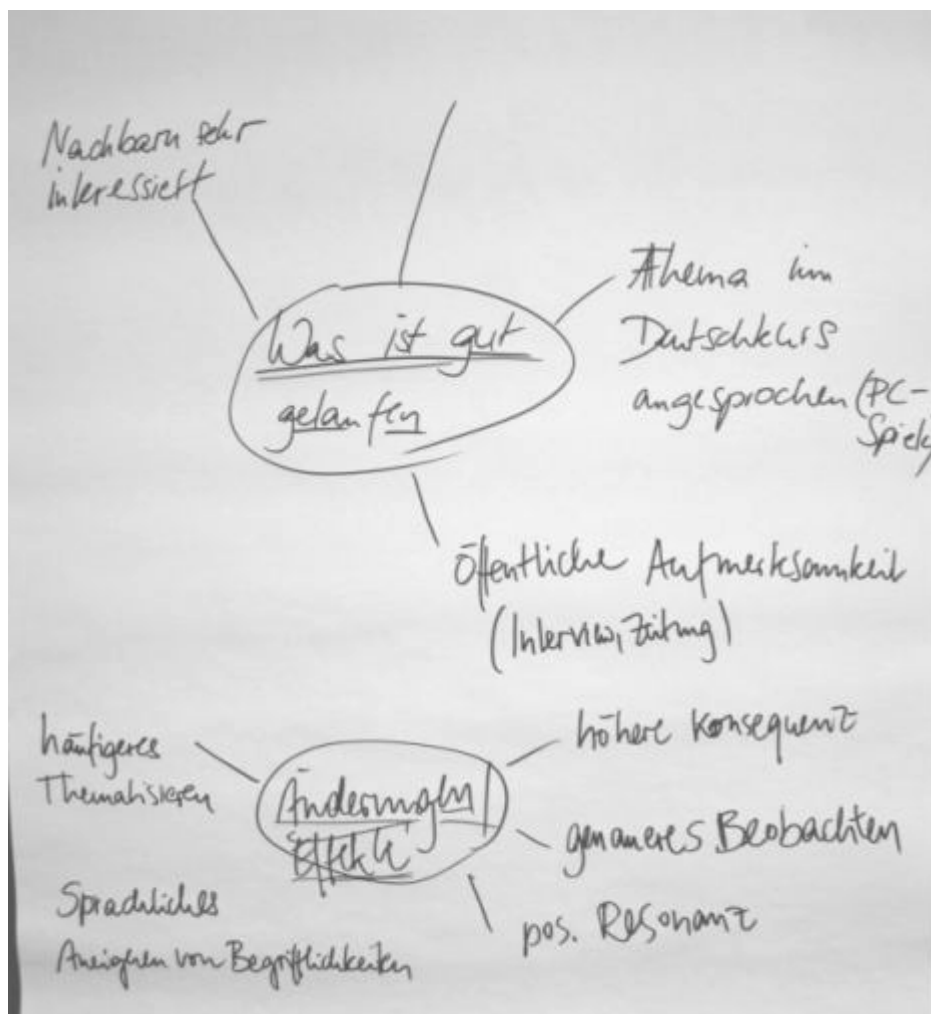 Nachbarn sehr
interessiert
Was ist gut
gelaufen
Thema im
Deutschkurs
angesprochen (PC-
Spiele)
öffentliche Aufmerksamkeit
(Interview, Zeitung)
häufigeres
Thematisieren
Änderungen/
Effekte
höhere Konsequenz
genaueres Beobachten
pos. Resonanz
Sprachliches
Aneignen von Begrifflichkeiten